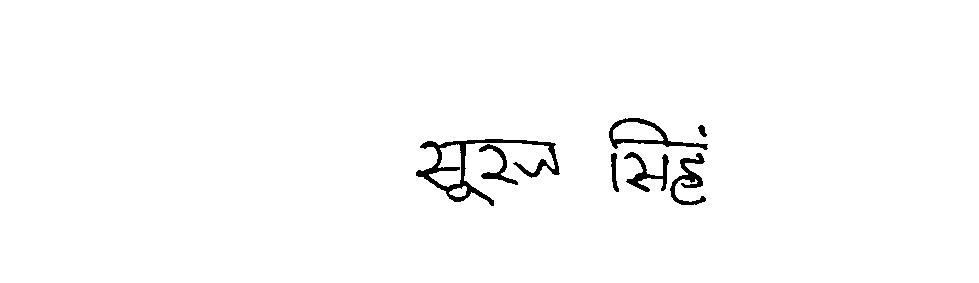 सूरज सिहं